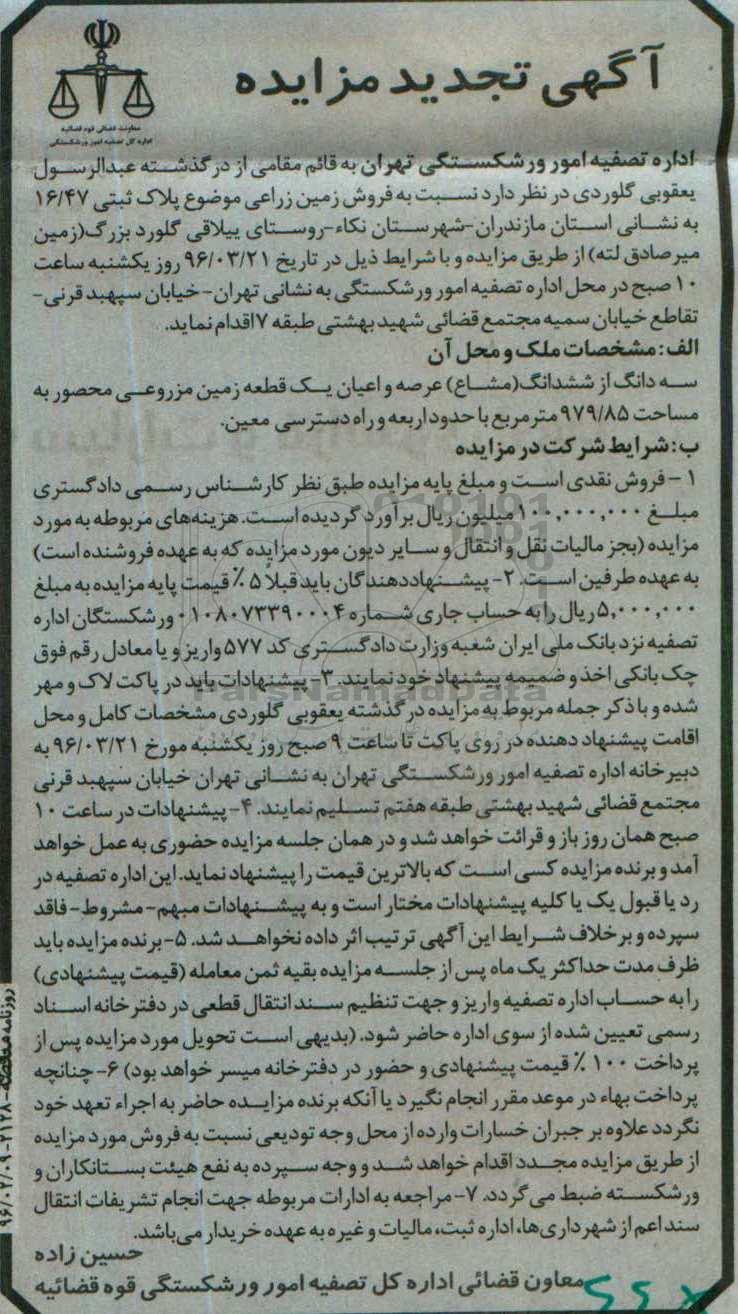 آگهی تجدید مزایده
معاونت قضائی قوه قضائیه
اداره کل تصفیه امور ورشکستگی
اداره تصفیه امور ورشکستگی تهران به قائم مقامی از درگذشته عبدالرسول
یعقوبی گلوردی در نظر دارد نسبت به فروش زمین زراعی موضوع پلاک ثبتی ۱۶/۴۷
به نشانی استان مازندران-شهرستان نکاء-روستای ییلاقی گلورد بزرگ(زمین
میرصادق لته) از طریق مزایده و با شرایط ذیل در تاریخ ۹۶/۰۳/۲۱ روز یکشنبه ساعت
۱۰ صبح در محل اداره تصفیه امور ورشکستگی به نشانی تهران-خیابان سپهبد قرنی-
تقاطع خیابان سمیه مجتمع قضائی شهید بهشتی طبقه ۷ اقدام نماید.
الف: مشخصات ملک و محل آن
سه دانگ از ششدانگ(مشاع) عرصه و اعیان یک قطعه زمین مزروعی محصور به
مساحت ۹۷۹/۸۵ متر مربع با حدود اربعه و راه دسترسی معین.
ب: شرایط شرکت در مزایده
۱- فروش نقدی است و مبلغ پایه مزایده طبق نظر کارشناس رسمی دادگستری
مبلغ ۱۰۰,۰۰۰,۰۰۰ میلیون ریال برآورد گردیده است. هزینه‌های مربوطه به مورد
مزایده (بجز مالیات نقل و انتقال و سایر دیون مورد مزایده که به عهده فروشنده است)
به عهده طرفین است. ۲- پیشنهاددهندگان باید قبلاً ۵٪ قیمت پایه مزایده به مبلغ
۵,۰۰۰,۰۰۰ ریال را به حساب جاری شماره ۰۱۰۸۰۷۳۳۹۰۰۰۴ ورشکستگان اداره
تصفیه نزد بانک ملی ایران شعبه وزارت دادگستری کد ۵۷۷ واریز و یا معادل رقم فوق
چک بانکی اخذ و ضمیمه پیشنهاد خود نمایند. ۳- پیشنهادات باید در پاکت لاک و مهر
شده و با ذکر جمله مربوط به مزایده درگذشته یعقوبی گلوردی مشخصات کامل و محل
اقامت پیشنهاد دهنده در روی پاکت تا ساعت ۹ صبح روز یکشنبه مورخ ۹۶/۰۳/۲۱ به
دبیرخانه اداره تصفیه امور ورشکستگی تهران به نشانی تهران خیابان سپهبد قرنی
مجتمع قضائی شهید بهشتی طبقه هفتم تسلیم نمایند. ۴- پیشنهادات در ساعت ۱۰
صبح همان روز باز و قرائت خواهد شد و در همان جلسه مزایده حضوری به عمل خواهد
آمد و برنده مزایده کسی است که بالاترین قیمت را پیشنهاد نماید. این اداره تصفیه در
رد یا قبول یک یا کلیه پیشنهادات مختار است و به پیشنهادات مبهم- مشروط- فاقد
سپرده و برخلاف شرایط این آگهی ترتیب اثر داده نخواهد شد. ۵- برنده مزایده باید
ظرف مدت حداکثر یک ماه پس از جلسه مزایده بقیه ثمن معامله (قیمت پیشنهادی)
را به حساب اداره تصفیه واریز و جهت تنظیم سند انتقال قطعی در دفترخانه اسناد
رسمی تعیین شده از سوی اداره حاضر شود. (بدیهی است تحویل مورد مزایده پس از
پرداخت ۱۰۰٪ قیمت پیشنهادی و حضور در دفترخانه میسر خواهد بود) ۶- چنانچه
پرداخت بهاء در موعد مقرر انجام نگیرد یا آنکه برنده مزایده حاضر به اجراء تعهد خود
نگردد علاوه بر جبران خسارات وارده از محل وجه تودیعی نسبت به فروش مورد مزایده
از طریق مزایده مجدد اقدام خواهد شد و وجه سپرده به نفع هیئت بستانکاران و
ورشکسته ضبط می گردد. ۷- مراجعه به ادارات مربوطه جهت انجام تشریفات انتقال
سند اعم از شهرداری‌ها، اداره ثبت، مالیات و غیره به عهده خریدار می‌باشد.
حسین زاده
معاون قضائی اداره کل تصفیه امور ورشکستگی قوه قضائیه
روزنامه مناقصه-۲۱۲۸-۹۶/۰۲/۰۹
ParsNamadData